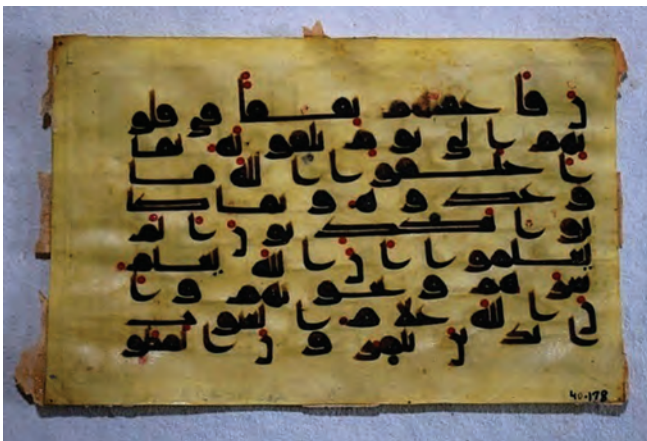 ن فاعقبهم نفقا في قلو
بهم الى يوم يلقونه بما
اخلفوا الله ما
وعدوه وبما كا
نوا يكذبون الم
يعلموا ان الله يعلم
سرهم ونجويهم وا
ن الله علم الغيوب
الذين يلمزون المطو
40.178